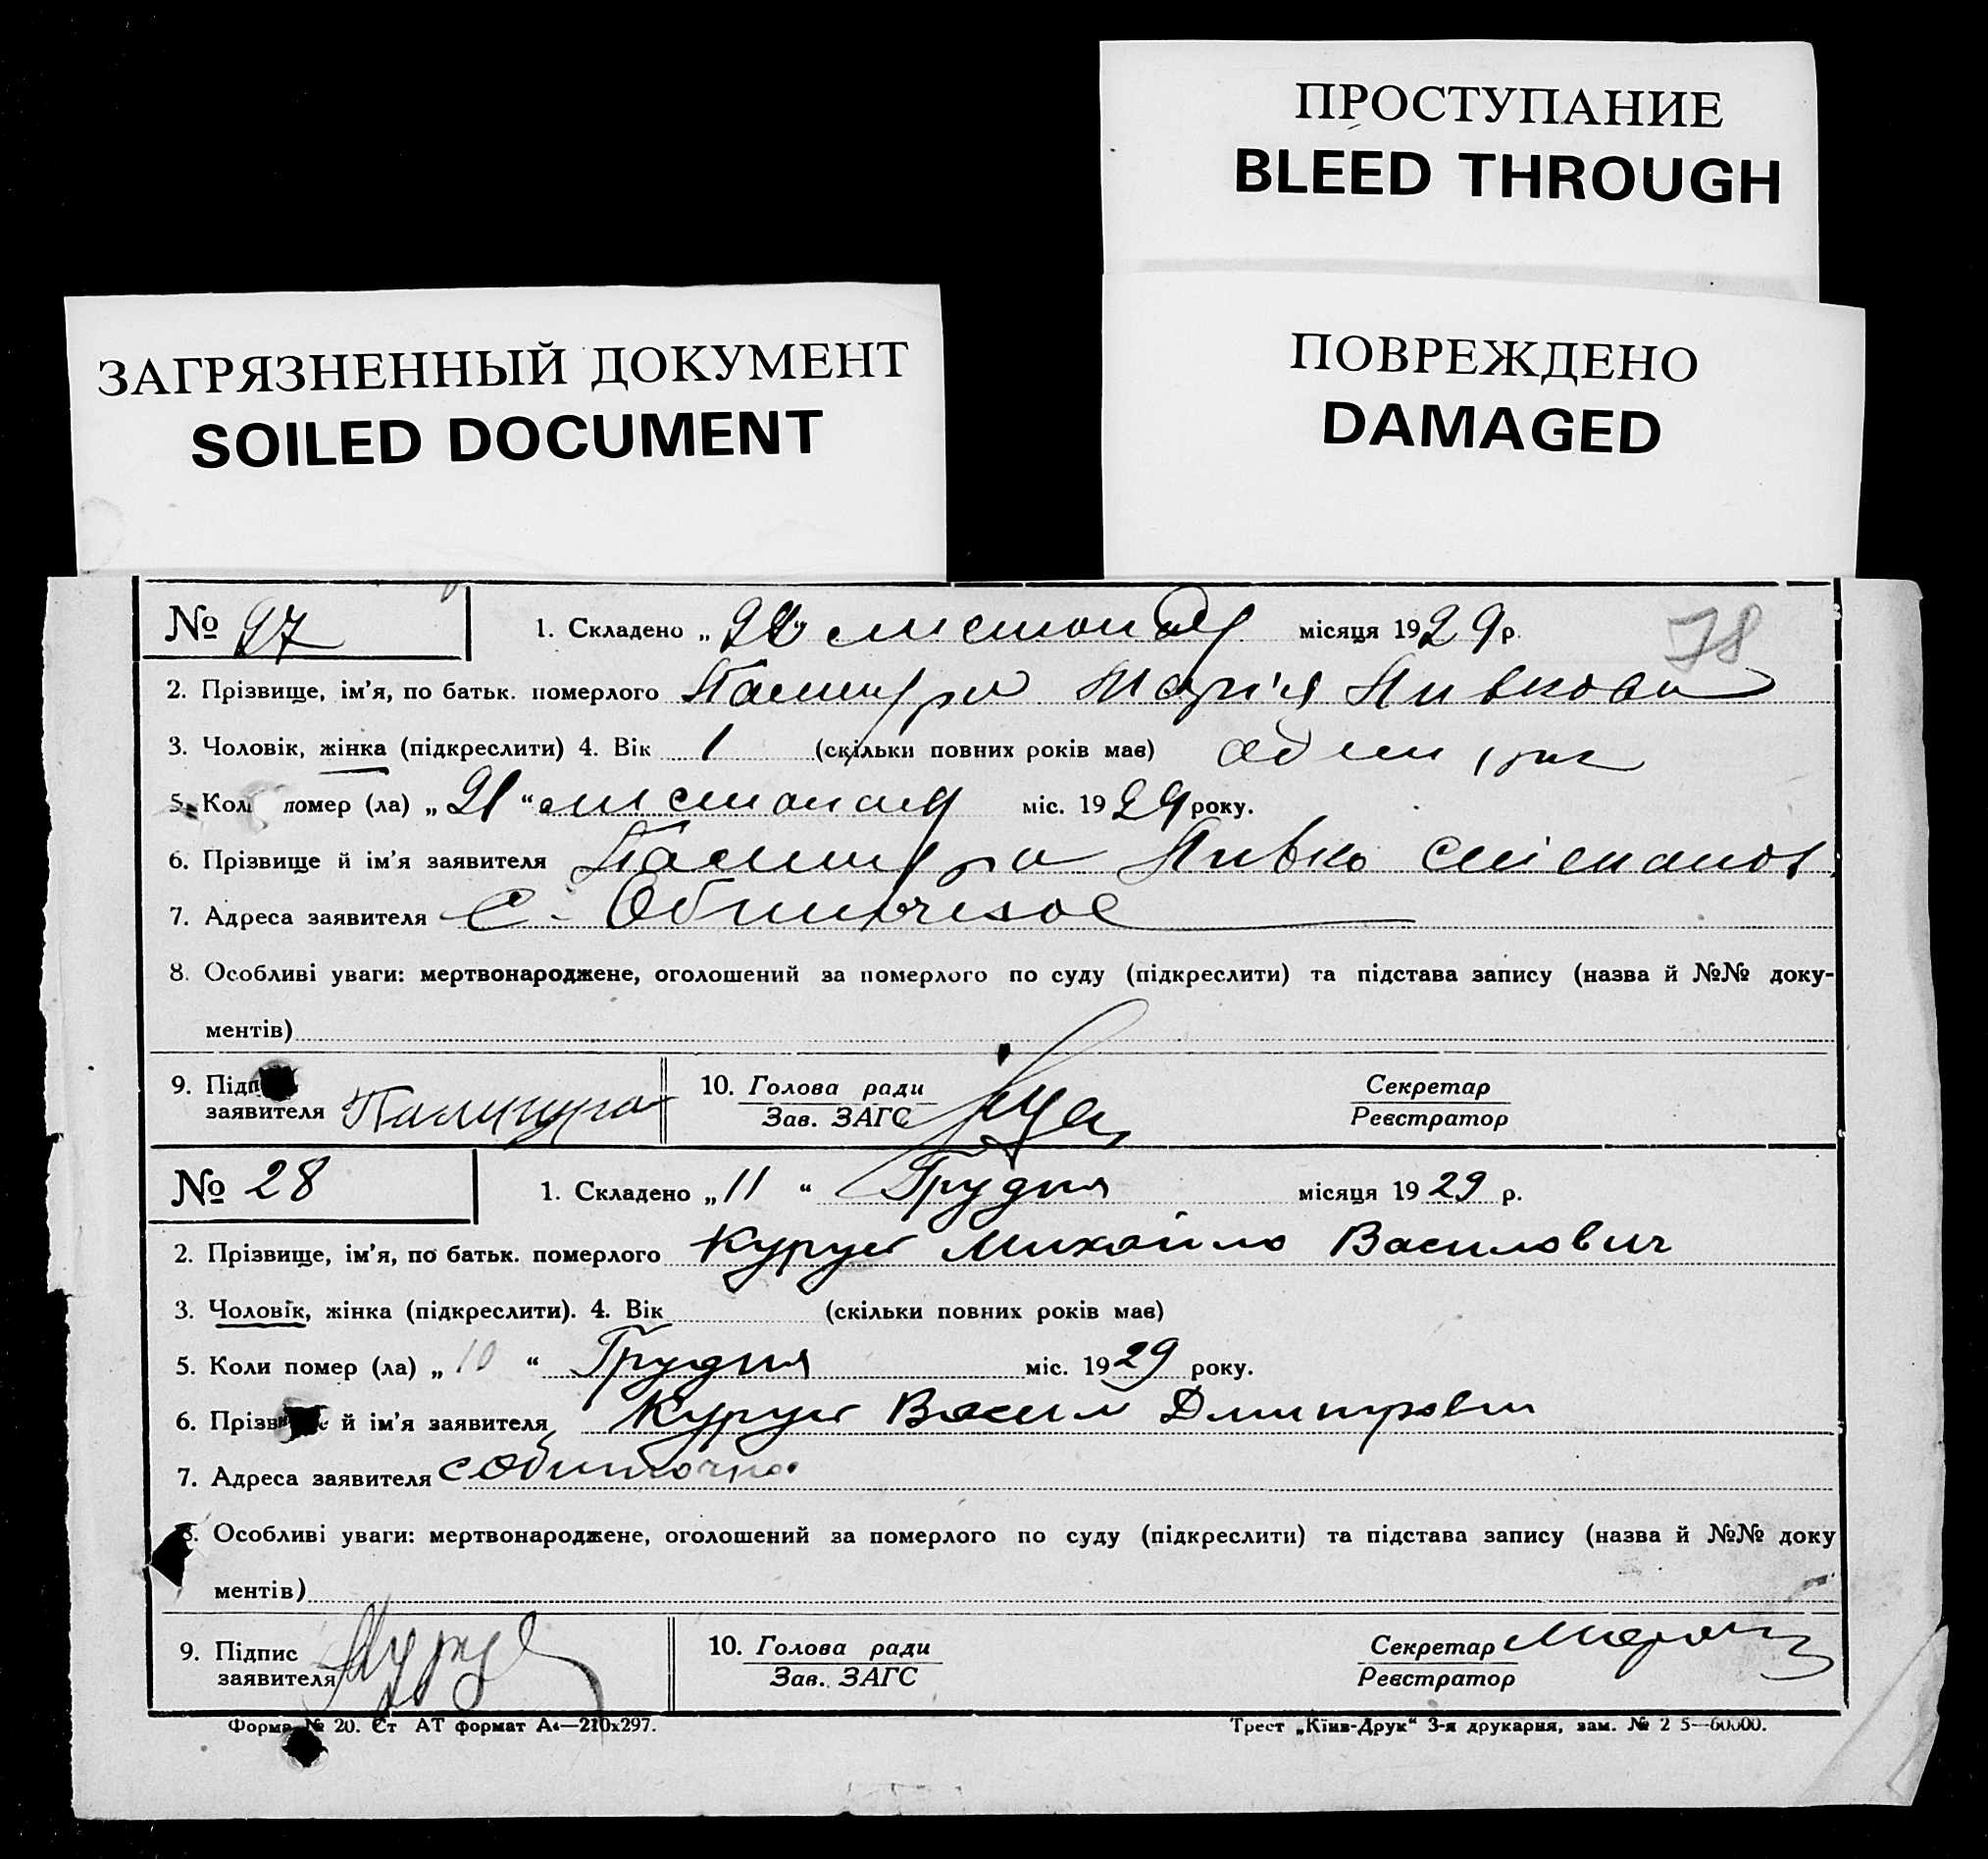 ПРОСТУПАНИЕ
BLEED THROUGH
ЗАГРЯЗНЕННЫЙ ДОКУМЕНТ
SOILED DOCUMENT
ПОВРЕЖДЕНО
DAMAGED
78
№ 27
1. Складено „22" листопаду місяця 1929 р.
2. Прізвище, ім'я, по батьк. померлого Палицура Марія
3. Чоловік, жінка (підкреслити) 4. Вік 1 (скільки повних років має) один рік
5. Коли помер (ла) „21" листопада міс. 1929 року.
6. Прізвище й ім'я заявителя Палицура
7. Адреса заявителя С.
8. Особливі уваги: мертвонароджене, оголошений за померлого по суду (підкреслити) та підстава запису (назва й №№ доку-
ментів)
9. Підпис заявителя Палицура
10. Голова ради
Зав. ЗАГС
Секретар
Реєстратор
№ 28
1. Складено „11" Грудня місяця 1929 р.
2. Прізвище, ім'я, по батьк. померлого Михайло Василович
3. Чоловік, жінка (підкреслити). 4. Вік (скільки повних років має)
5. Коли помер (ла) „10" Грудня міс. 1929 року.
6. Прізвище й ім'я заявителя Васил Дмитрович
7. Адреса заявителя с
8. Особливі уваги: мертвонароджене, оголошений за померлого по суду (підкреслити) та підстава запису (назва й №№ доку
ментів)
9. Підпис заявителя
10. Голова ради
Зав. ЗАГС
Секретар
Реєстратор
Форма № 20. Ст АТ формат А4—210х297.
Трест „Київ-Друк" 3-я друкарня, зам. №